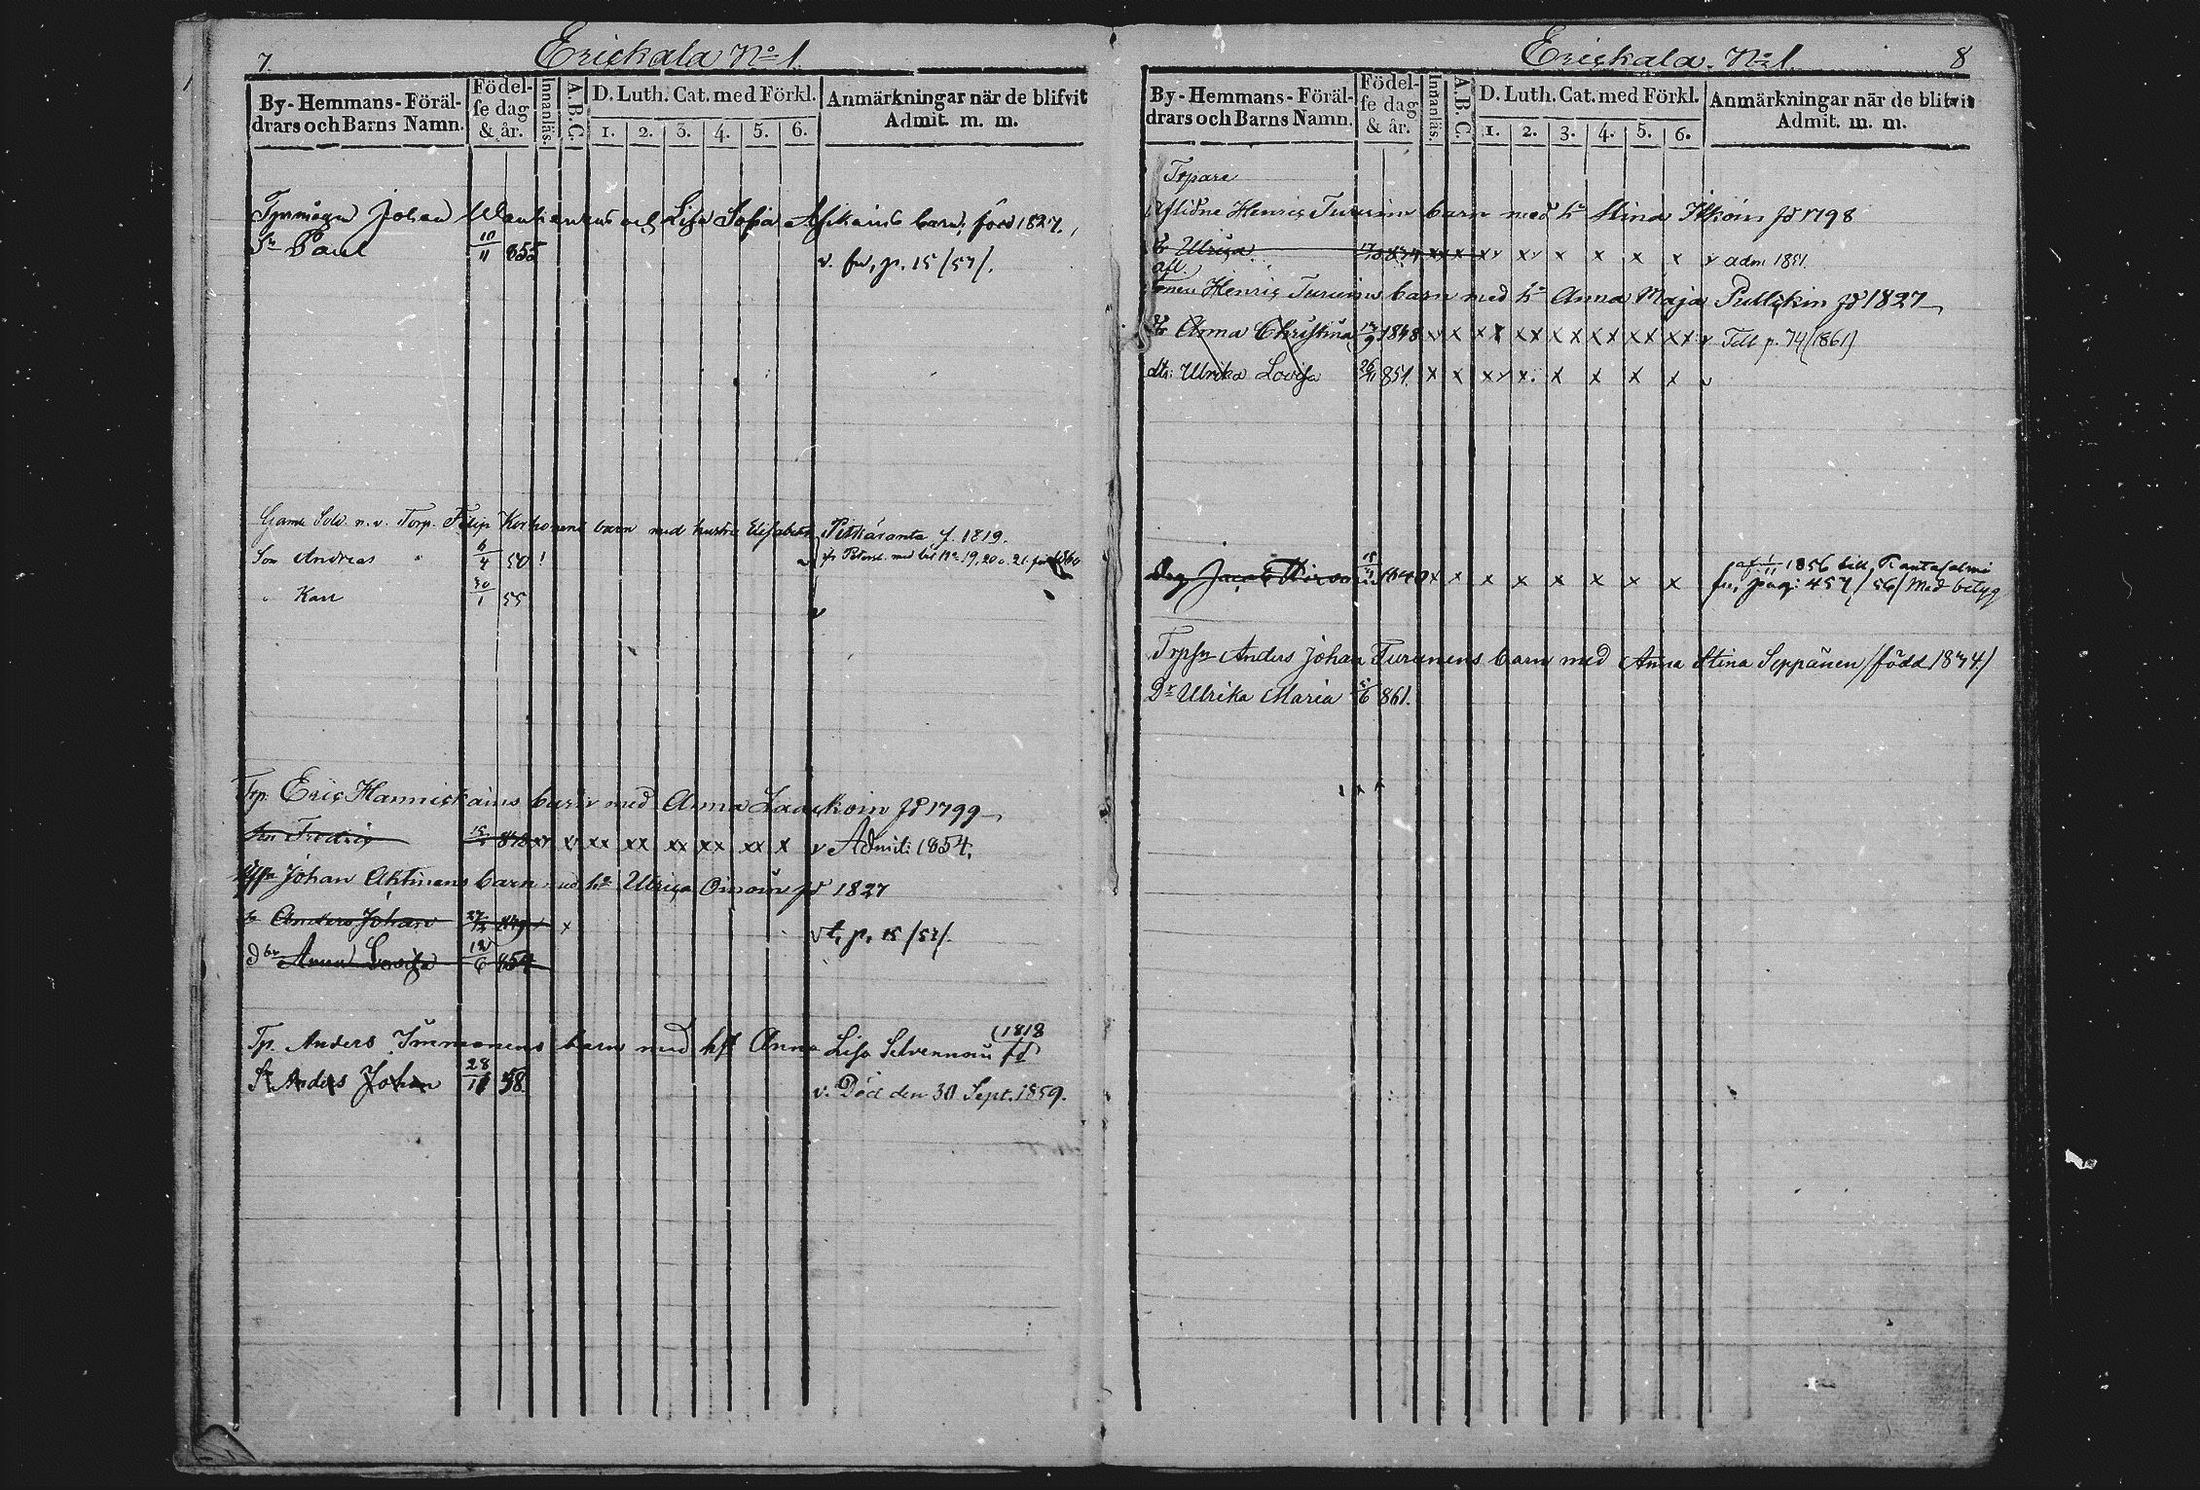 7.
Erickala No 1.
By-Hemmans-Föräl-
drars och Barns Namn.
Födel-
se dag
& år.
Innanläs.
A.B.C.
D. Luth. Cat. med Förkl.
1. 2. 3. 4. 5. 6.
Anmärkningar när de blifvit
Admit. m. m.
Johan och Lisa Sofia barn, född 1827.
Sn Paul 10/11 855 v. fr. p. 15/57/.
Gamle Sold. n. v. Torp. Filip Korhonens barn med hustru Elisabeth Pitkäranta f. 1819.
Son Andreas 6/4 50 ! 19, 20 o. 21 1860
" Karl 30/1 55 v
Trp. Eric Hannickains barn med Anna Laackoin fd 1799
Sn Fredric x xx xx xx xx xx x v Admit: 1854.
Johan Aktinens barn med ha Ulrica Oinoin fd 1827
Anders Johan 849 x
vt. p. 15/57/.
dtr Anna Lovisa 12/6 854
Tp. Anders Immonens barn med hst Anna Lisa Selvennoin fd 1818
Sn Anders Johan 28/11 58 v. Död den 30 Sept. 1859.
Erickala. No 1.
8
By-Hemmans-Föräl-
drars och Barns Namn.
Födel-
se dag
& år.
Innanläs.
A.B.C.
D. Luth. Cat. med Förkl.
1. 2. 3. 4. 5. 6.
Anmärkningar när de blifvit
Admit. m. m.
Trpare
Aflidne Henric Turuins barn med ha Stina Itkoin fd 1798
Dr Ulrica xx x xx xx x x x x v adm 1851.
afl.
Henric Turuins barn med ha Anna Maja Pullickin fd 1827
Dr Anna Christina 17/9 1848 xx x xx xx xx xx xx xx v Till p. 74 (1861)
dtr Ulrika Lovisa 26/11 851. x x xx x. x x x x v
1856 till Rantasalmi
Drg Jacob 1840 x x x x x x x x fr. pag: 457/56/ Med betyg
Trpsn Anders Johan Turunens barn med Anna Stina Seppänen /född 1834/
Dr Ulrika Maria 5/6 861.